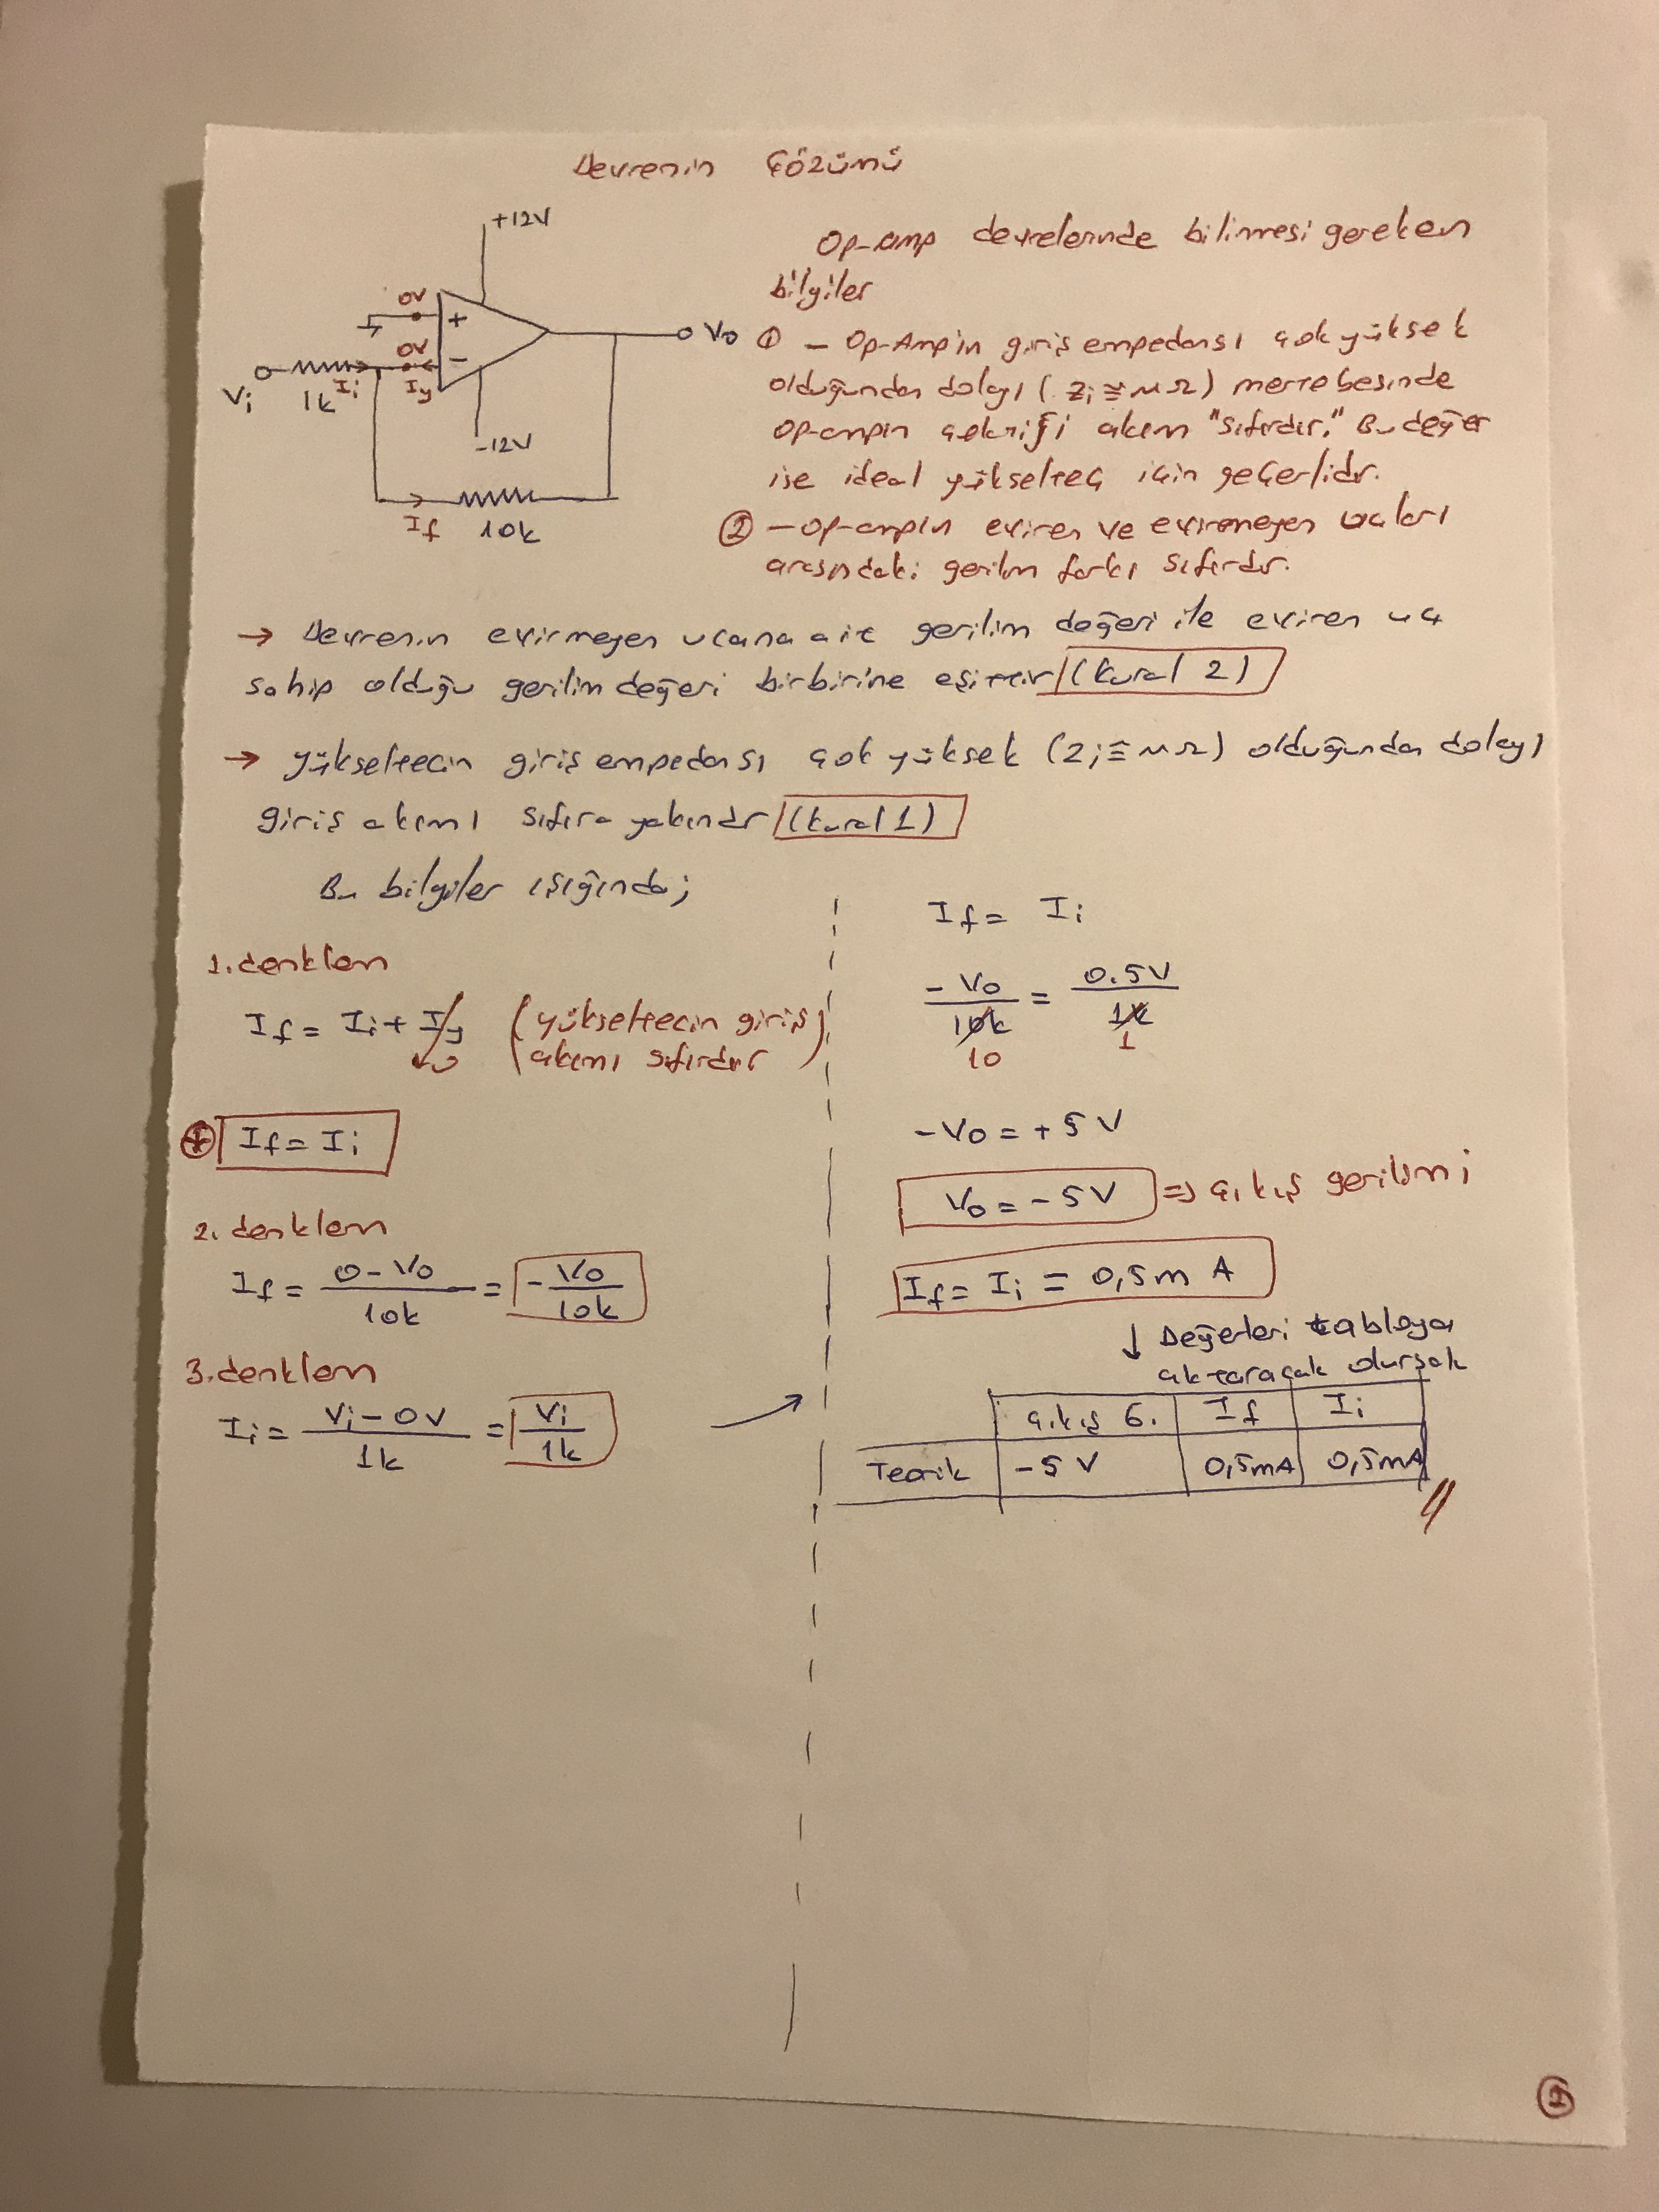 Devrenin Çözümü
+12V
0V
+
0V
-
Vi
1k
Ii
Iy
Vo
-12V
If
10k
Op-amp devrelerinde bilinmesi gereken
bilgiler
① - Op-Amp'in giriş empedansı çok yüksek
olduğundan dolayı (Zi ≅ MΩ) mertebesinde
Op-ampin çektiği akım "sıfırdır." Bu değer
ise ideal yükselteç için geçerlidir.
② - Op-ampin eviren ve evirmeyen uçları
arasındaki gerilim farkı sıfırdır.
→ Devrenin evirmeyen ucuna ait gerilim değeri ile eviren uç
sahip olduğu gerilim değeri birbirine eşittir (kural 2)
→ yükseltecin giriş empedansı çok yüksek (Zi ≅ MΩ) olduğundan dolayı
giriş akımı sıfıra yakındır (kural 1)
Bu bilgiler ışığında;
1. denklem
If = Ii + Iy (yükseltecin giriş
0 akımı sıfırdır)
+ If = Ii
2. denklem
If = 0 - Vo / 10k = - Vo / 10k
3. denklem
Ii = Vi - 0V / 1k = Vi / 1k
If = Ii
- Vo / 10k = 0.5V / 1k
10 1
-Vo = +5V
Vo = -5V => çıkış gerilimi
If = Ii = 0,5m A
↓ Değerleri tabloya
aktaracak olursak
çıkış G. If Ii
Teorik -5 V 0,5mA 0,5mA